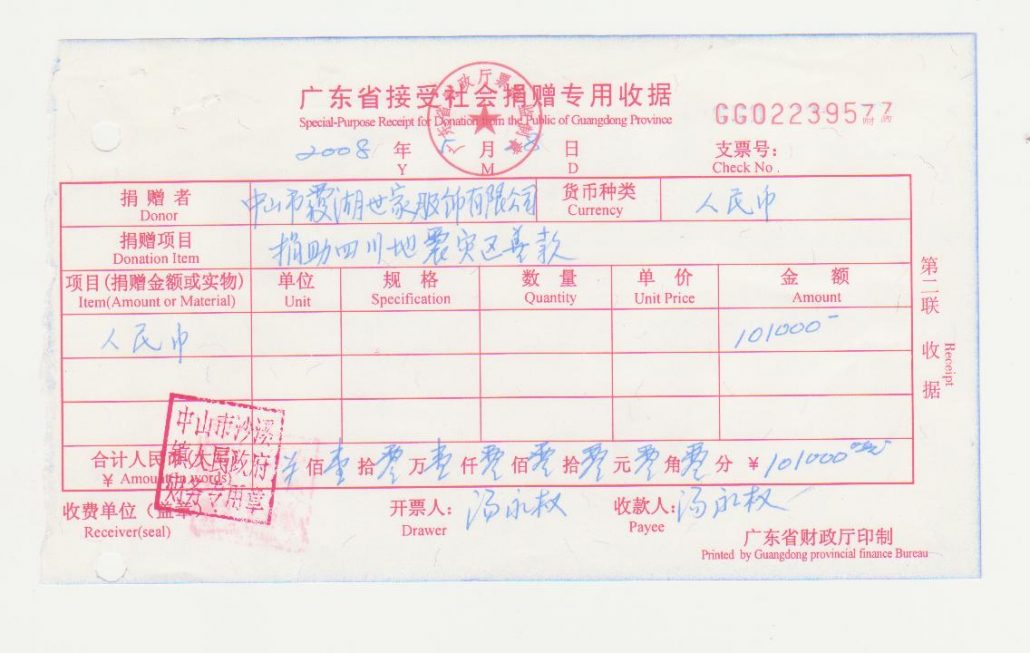 广东省接受社会捐赠专用收据
Special-Purpose Receipt for Donation from the Public of Guangdong Province
GG02239577
2008 年 5 月 28 日
Y M D
支票号:
Check No.
捐赠者 中山市霞湖世家服饰有限公司 货币种类 人民币
Donor Currency
捐赠项目 捐助四川地震灾区善款
Donation Item
项目(捐赠金额或实物) 单位 规格 数量 单价 金额
Item(Amount or Material) Unit Specification Quantity Unit Price Amount
人民币 101000-
合计人民币(大写) 佰壹拾零万壹仟零佰零拾零元零角零分 ¥101000
¥ Amount(in words)
收费单位(盖章): 开票人: 汤永权 收款人: 汤永权
Receiver(seal) Drawer Payee
广东省财政厅印制
Printed by Guangdong provincial finance Bureau
第二联 收据
Receipt
中山市沙溪
镇人民政府
财务专用章